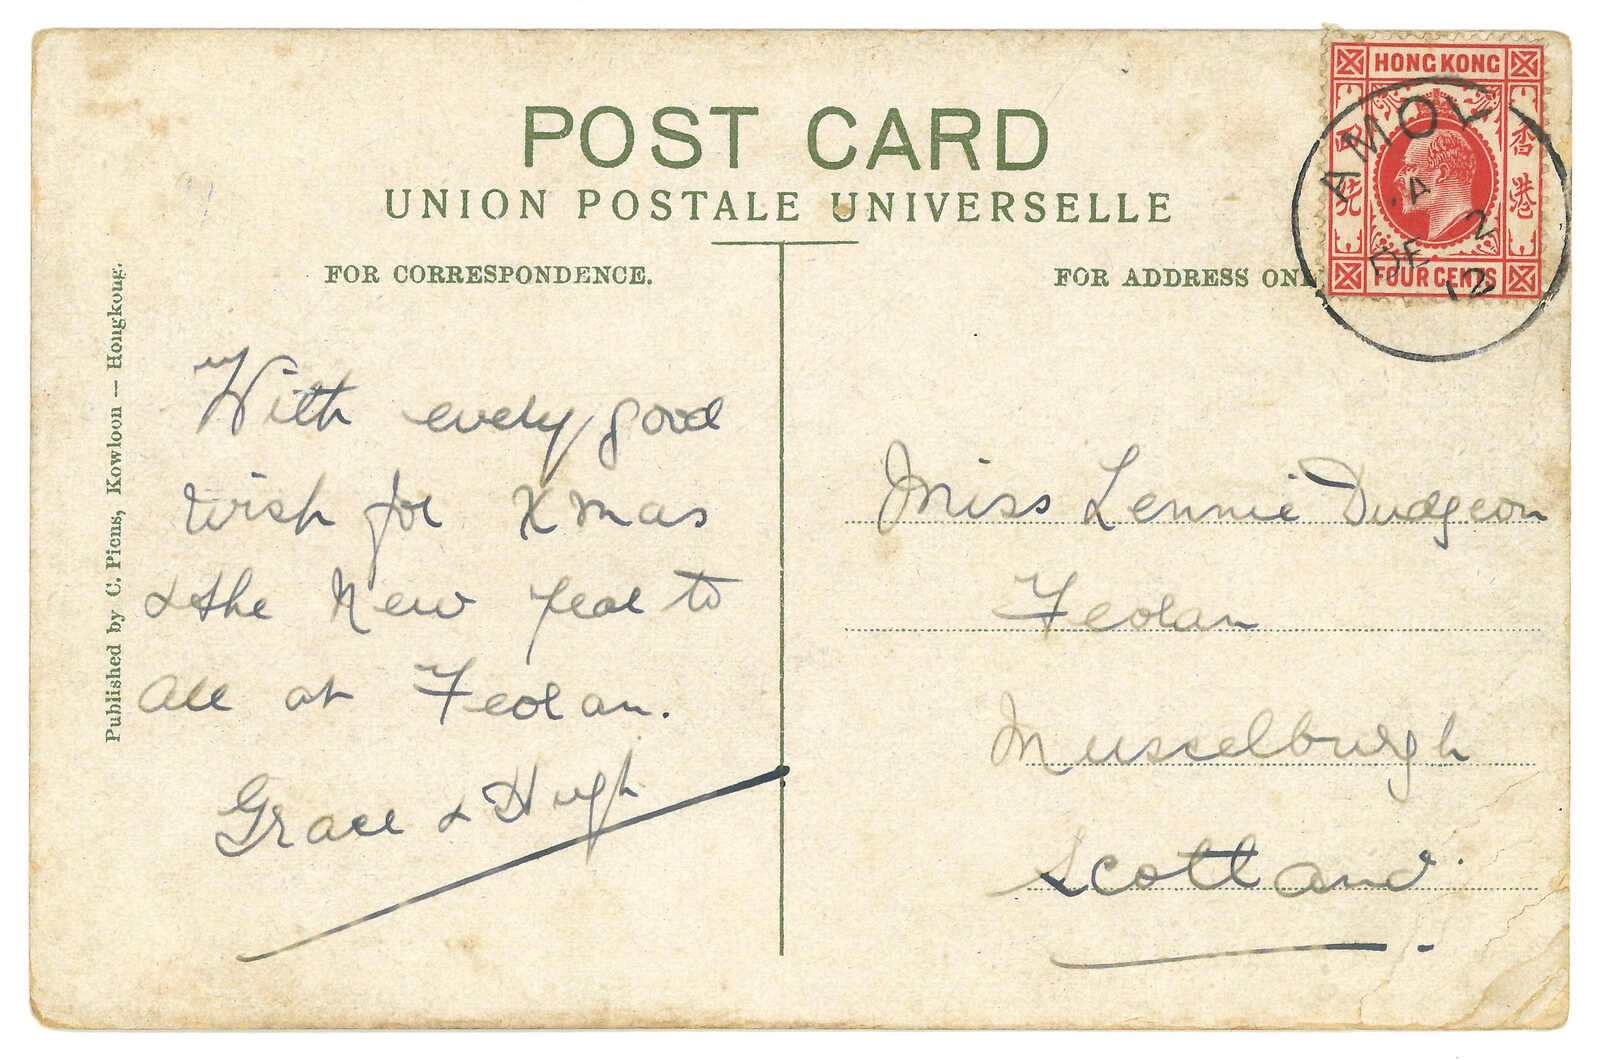 POST CARD
UNION POSTALE UNIVERSELLE
FOR CORRESPONDENCE.
FOR ADDRESS ON
HONG KONG
香港
FOUR CENTS
AMOY
A
DE 2
12
Published by C. Picns, Kowloon — Hongkoug.
With every good
wish for Xmas
& the New Year to
all at Feolan.
Grace & Hugh
Miss Lennie Dudgeon
Feolan
Musselburgh
Scotland.